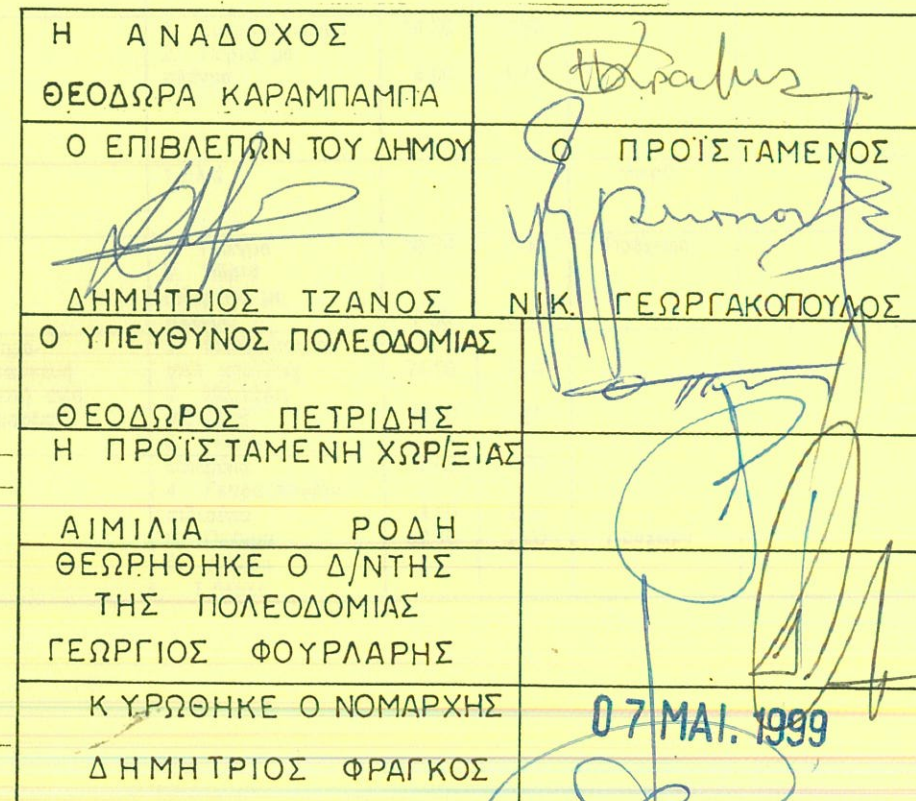 Η ΑΝΑΔΟΧΟΣ
ΘΕΟΔΩΡΑ ΚΑΡΑΜΠΑΜΠΑ
Ο ΕΠΙΒΛΕΠΩΝ ΤΟΥ ΔΗΜΟΥ
ΔΗΜΗΤΡΙΟΣ ΤΖΑΝΟΣ
Ο ΠΡΟΪΣΤΑΜΕΝΟΣ
ΝΙΚ. ΓΕΩΡΓΑΚΟΠΟΥΛΟΣ
Ο ΥΠΕΥΘΥΝΟΣ ΠΟΛΕΟΔΟΜΙΑΣ
ΘΕΟΔΩΡΟΣ ΠΕΤΡΙΔΗΣ
Η ΠΡΟΪΣΤΑΜΕΝΗ ΧΩΡ/ΞΙΑΣ
ΑΙΜΙΛΙΑ ΡΟΔΗ
ΘΕΩΡΗΘΗΚΕ Ο Δ/ΝΤΗΣ
ΤΗΣ ΠΟΛΕΟΔΟΜΙΑΣ
ΓΕΩΡΓΙΟΣ ΦΟΥΡΛΑΡΗΣ
ΚΥΡΩΘΗΚΕ Ο ΝΟΜΑΡΧΗΣ
ΔΗΜΗΤΡΙΟΣ ΦΡΑΓΚΟΣ
07 ΜΑΙ. 1999